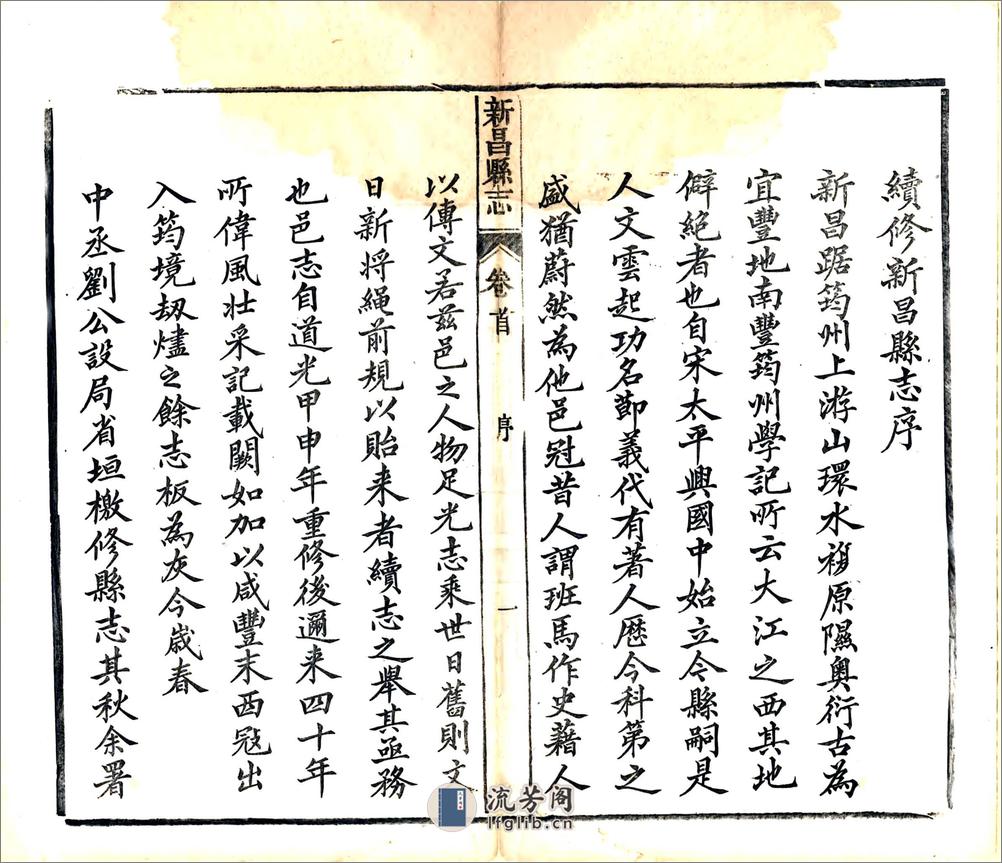 續修新昌縣志序
新昌踞筠州上游山環水複原隰奧衍古為
宜豐地南豐筠州學記所云大江之西其地
僻絕者也自宋太平興國中始立令縣嗣是
人文雲起功名節義代有著人歷今科第之
盛猶蔚然為他邑冠昔人謂班馬作史藉人
新昌縣志
卷首
序
一
以傳文若茲邑之人物足光志乘世日舊則文
日新將繩前規以貽来者續志之舉其亟務
也邑志自道光甲申年重修後邇来四十年
所偉風壯采記載闕如加以咸豐末西冦出
入筠境刼燼之餘志板為灰今歲春
中丞劉公設局省垣檄修縣志其秋余署
流芳阁
lfglib.cn